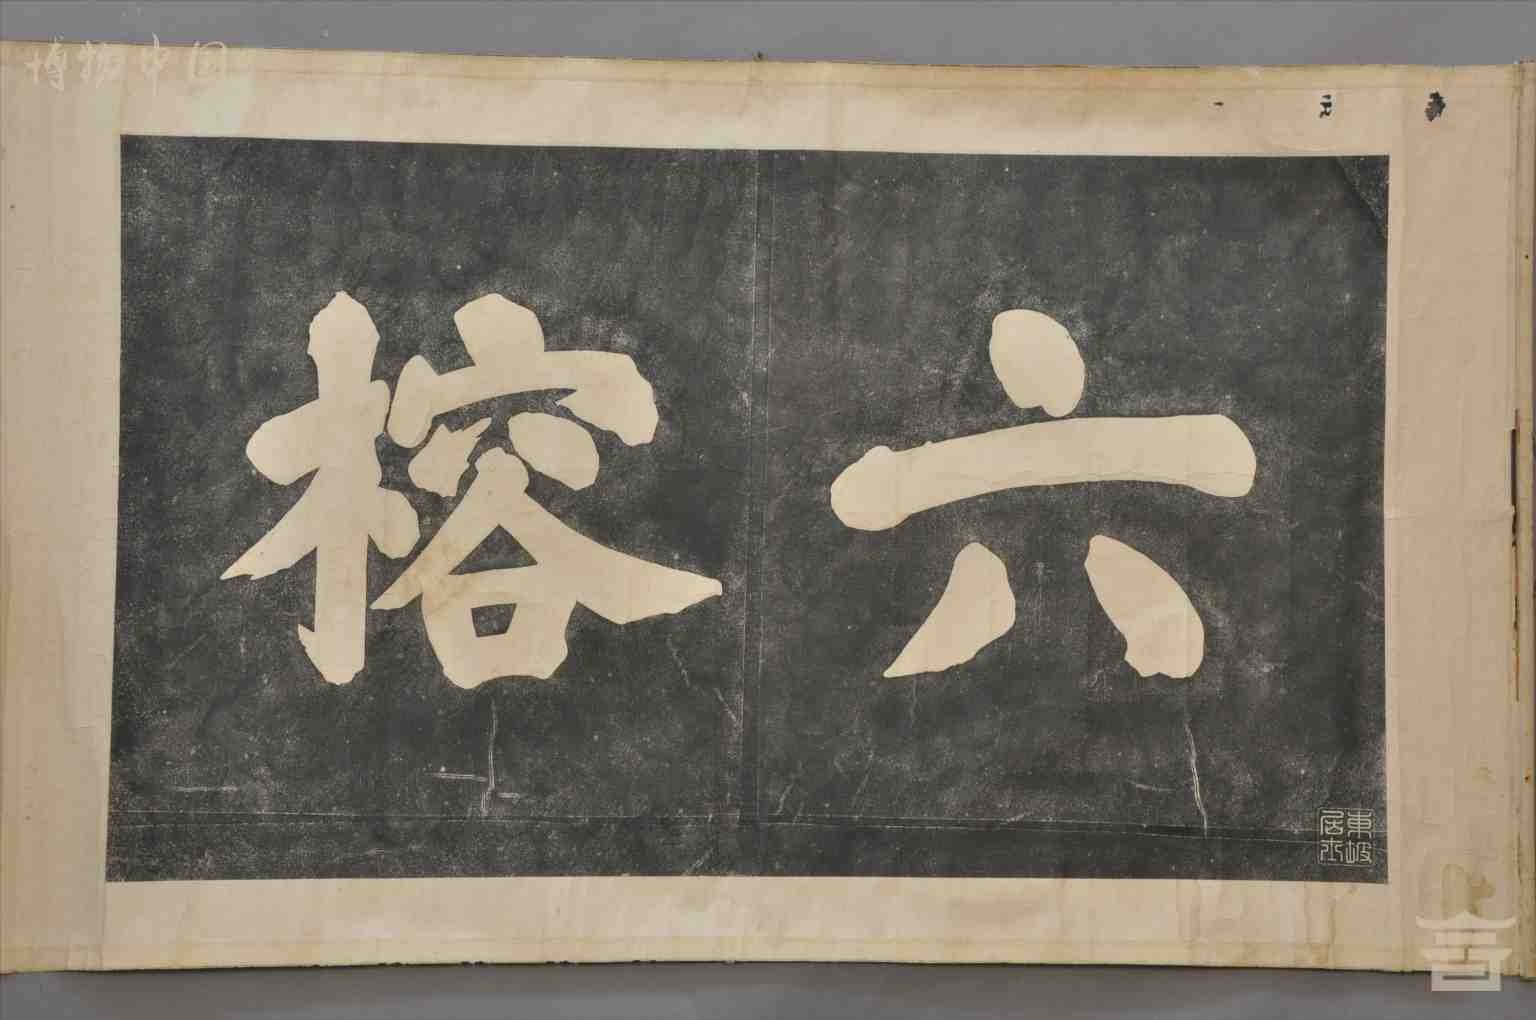 六榕
東坡居士
博物中国